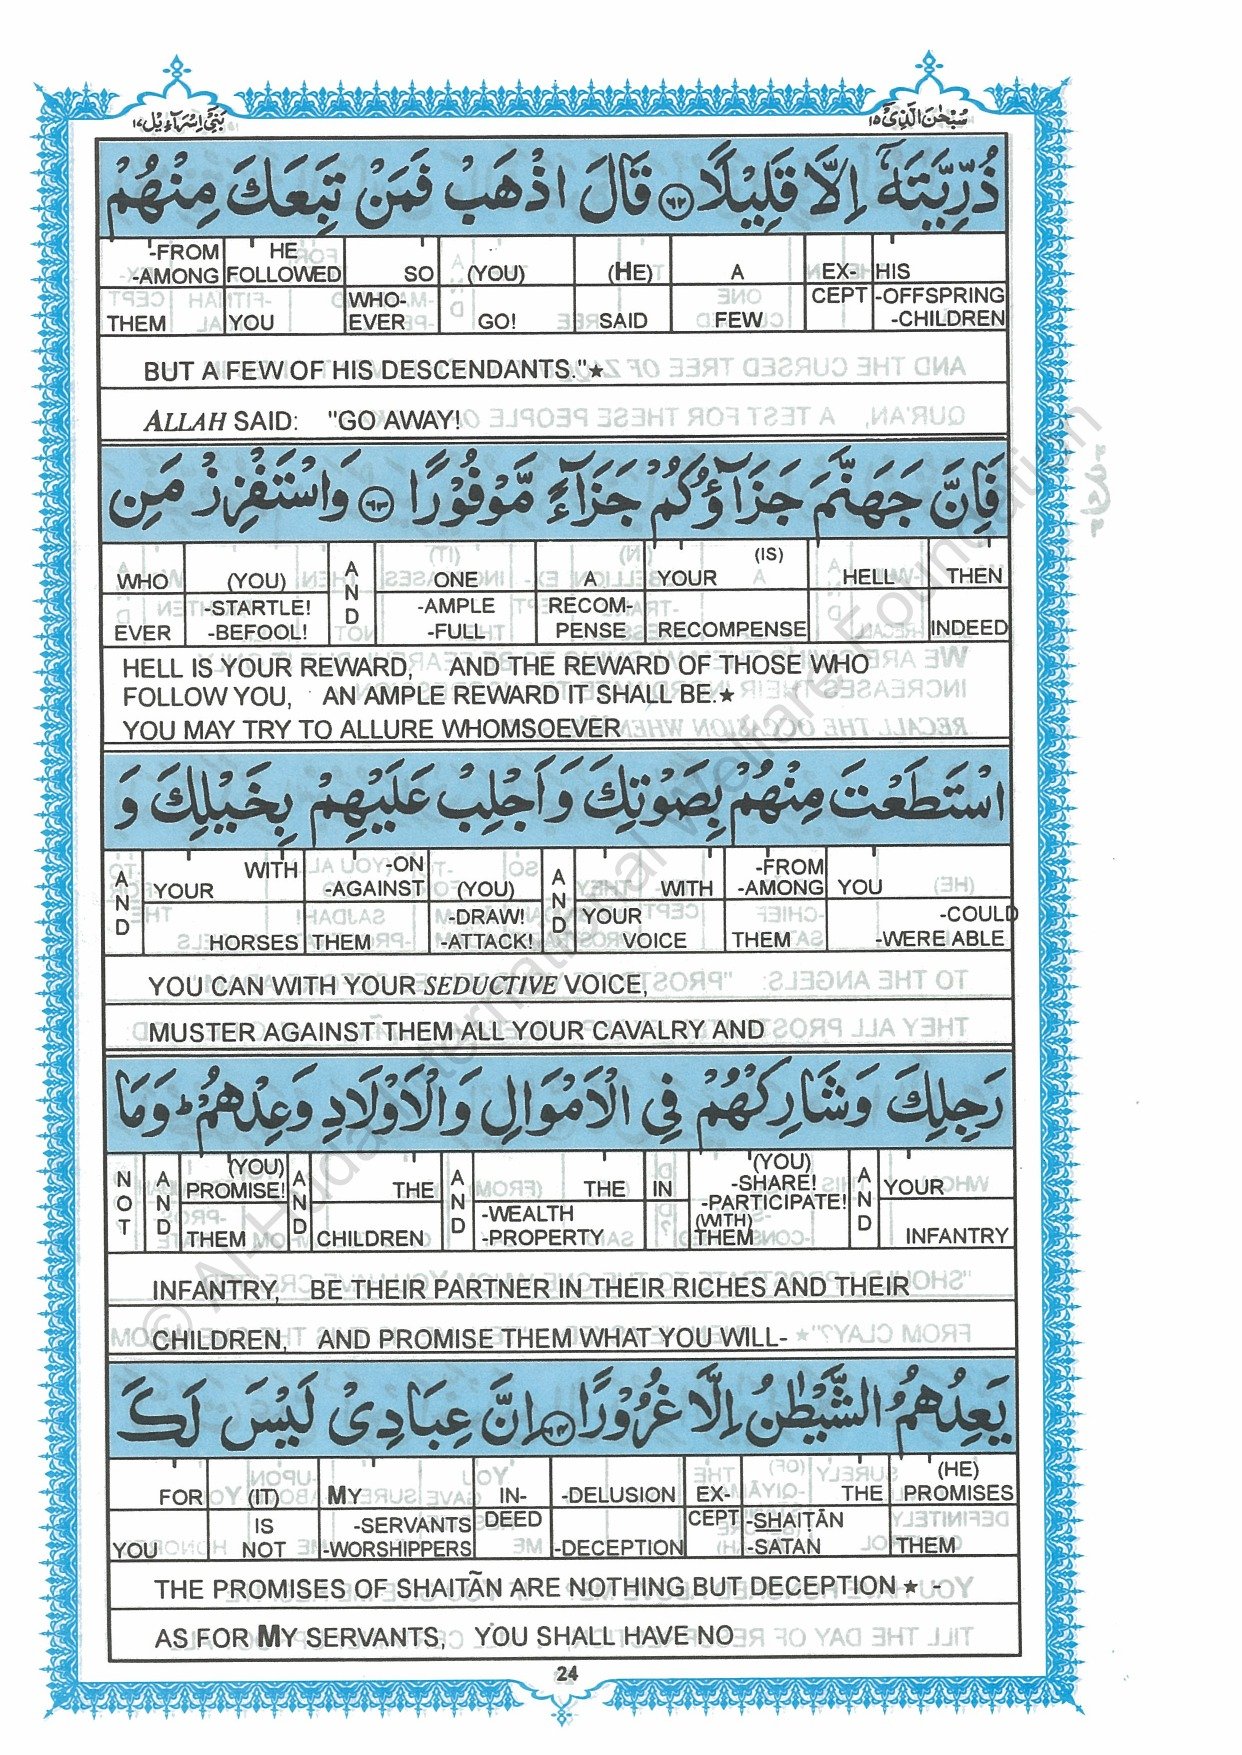 بَنِیْٓ اِسْرَآءِیْل ١٧
سُبْحٰنَ الَّذِیْ ١٥
ذُرِّيَّتَهٗٓ اِلَّا قَلِيْلًا ۶۲ قَالَ اذْهَبْ فَمَنْ تَبِعَكَ مِنْهُمْ
-FROM HE
-AMONG FOLLOWED SO (YOU) (HE) A EX- HIS
WHO- CEPT -OFFSPRING
THEM YOU EVER GO! SAID FEW -CHILDREN
BUT A FEW OF HIS DESCENDANTS."★
ALLAH SAID: "GO AWAY!
فَاِنَّ جَهَنَّمَ جَزَآؤُكُمْ جَزَآءً مَّوْفُوْرًا ۶۳ وَاسْتَفْزِزْ مَنِ
(IS)
WHO (YOU) AND ONE A YOUR HELL THEN
-STARTLE! -AMPLE RECOM-
EVER -BEFOOL! -FULL PENSE RECOMPENSE INDEED
HELL IS YOUR REWARD, AND THE REWARD OF THOSE WHO
FOLLOW YOU, AN AMPLE REWARD IT SHALL BE.★
YOU MAY TRY TO ALLURE WHOMSOEVER
اسْتَطَعْتَ مِنْهُمْ بِصَوْتِكَ وَاَجْلِبْ عَلَيْهِمْ بِخَيْلِكَ وَ
WITH -ON -FROM
AND YOUR -AGAINST (YOU) AND WITH -AMONG YOU
-DRAW! YOUR -COULD
HORSES THEM -ATTACK! VOICE THEM -WERE ABLE
YOU CAN WITH YOUR SEDUCTIVE VOICE,
MUSTER AGAINST THEM ALL YOUR CAVALRY AND
رَجِلِكَ وَشَارِكْهُمْ فِي الْاَمْوَالِ وَالْاَوْلَادِ وَعِدْهُمْ ؕ وَمَا
(YOU) (YOU)
NOT AND PROMISE! AND THE AND THE IN -SHARE! AND YOUR
-PARTICIPATE!
-WEALTH (WITH)
THEM CHILDREN -PROPERTY THEM INFANTRY
INFANTRY, BE THEIR PARTNER IN THEIR RICHES AND THEIR
CHILDREN, AND PROMISE THEM WHAT YOU WILL-
يَعِدُهُمُ الشَّيْطٰنُ اِلَّا غُرُوْرًا ۶۴ اِنَّ عِبَادِيْ لَيْسَ لَكَ
(HE)
FOR (IT) MY IN- -DELUSION EX- THE PROMISES
IS -SERVANTS DEED CEPT -SHAIṬĀN
YOU NOT -WORSHIPPERS -DECEPTION -SATAN THEM
THE PROMISES OF SHAITĀN ARE NOTHING BUT DECEPTION ★ -
AS FOR MY SERVANTS, YOU SHALL HAVE NO
24
© Al-Huda International Welfare Foundation